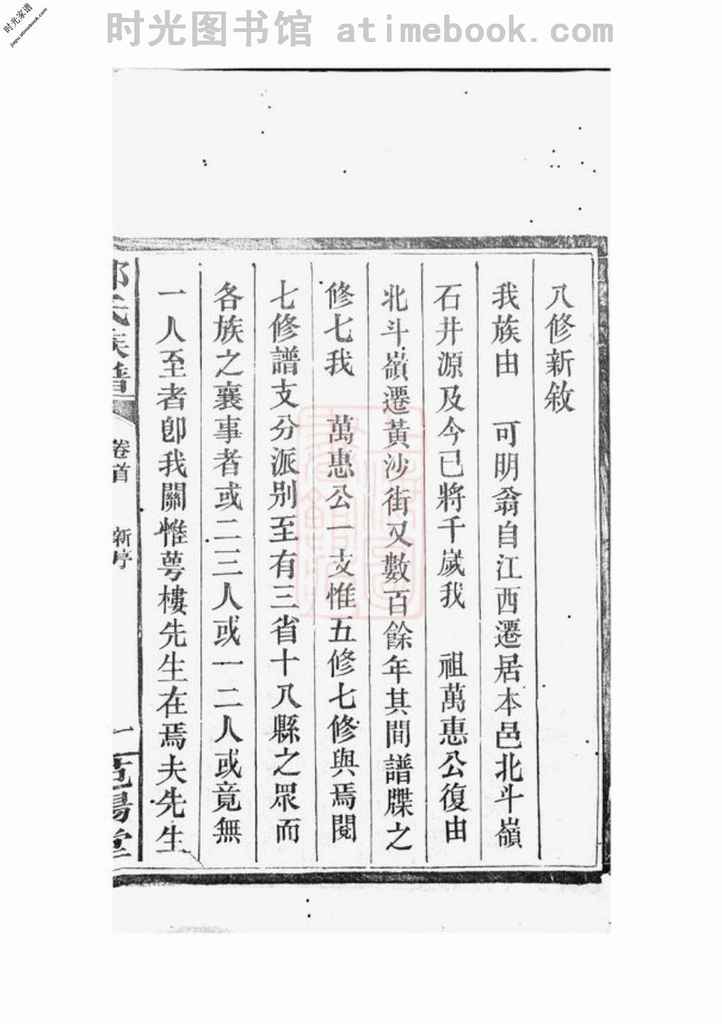 时光家谱
jiapu.atimebook.com
时光图书馆 atimebook.com
八修新敘
我族由 可明翁自江西遷居本邑北斗嶺
石井源及今已將千歲我 祖萬惠公復由
北斗嶺遷黃沙街又數百餘年其間譜牒之
修七我 萬惠公一支惟五修七修與焉閱
七修譜支分派別至有三省十八縣之眾而
各族之襄事者或二三人或一二人或竟無
一人至者卽我關惟萼樓先生在焉夫先生
氏族譜
卷首
新序
一
范陽堂